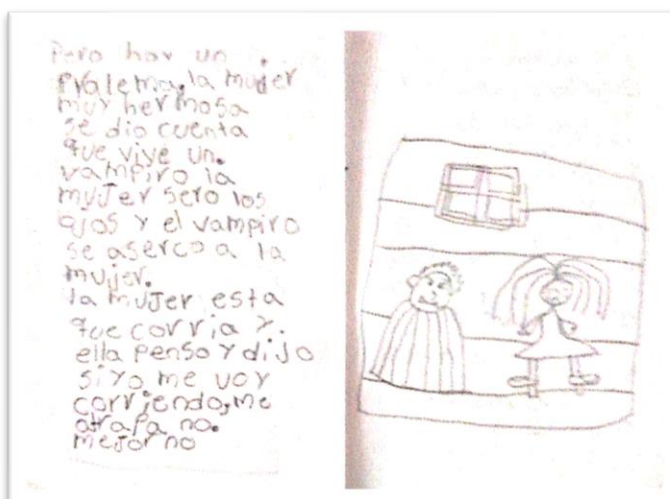 Pero hay un
pralema. la mujer
muy hermosa
se dio cuenta
que vive un.
vampiro la
mujer sero los
ojos y el vampiro
se aserco a la
mujer.
la mujer esta
que corria y.
ella penso y dijo
si yo me voy
corriendo, me
atrapa no.
mejor no